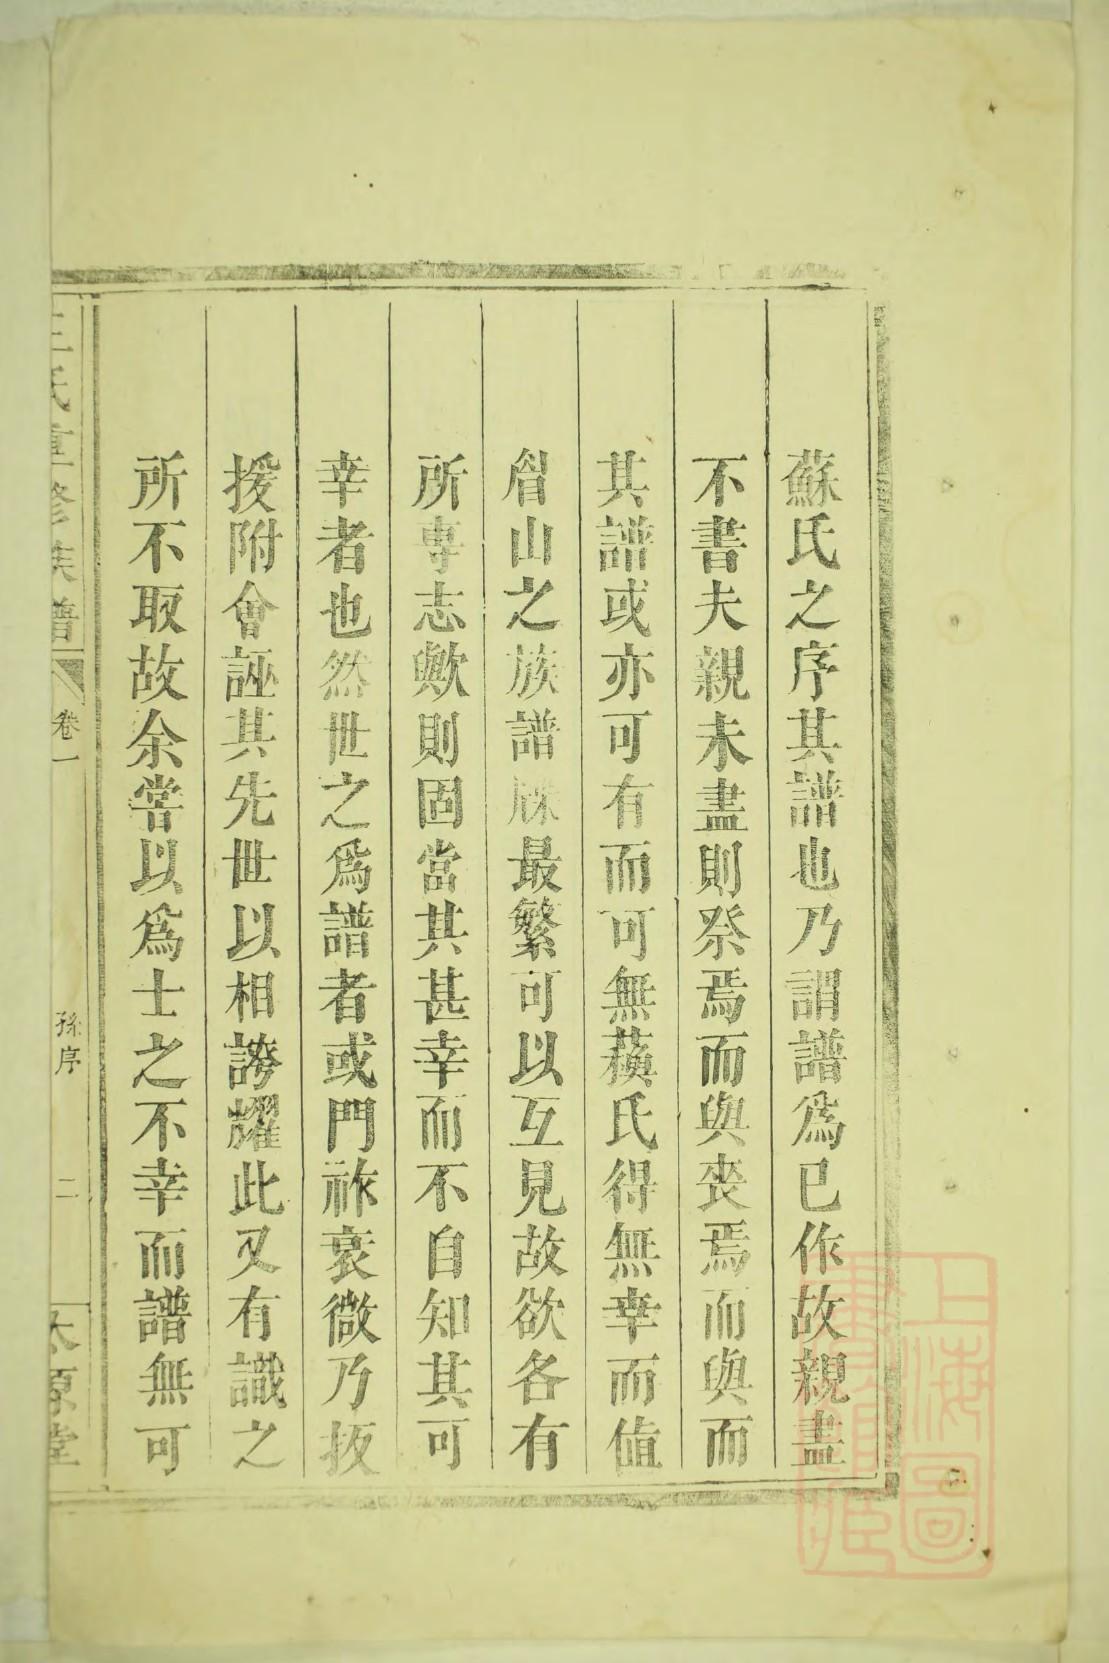 蘇氏之序其譜也乃謂譜爲已作故親盡
不書夫親未盡則祭焉而與喪焉而與而
其譜或亦可有而可無蘇氏得無幸而值
眉山之族譜牒最繁可以互見故欲各有
所專志歟則固當其甚幸而不自知其可
幸者也然世之爲譜者或門祚衰微乃扳
援附會誣其先世以相誇耀此又有識之
所不取故余嘗以爲士之不幸而譜無可
王氏重修族譜
卷一
孫序
二
太原堂
上海圖書館藏